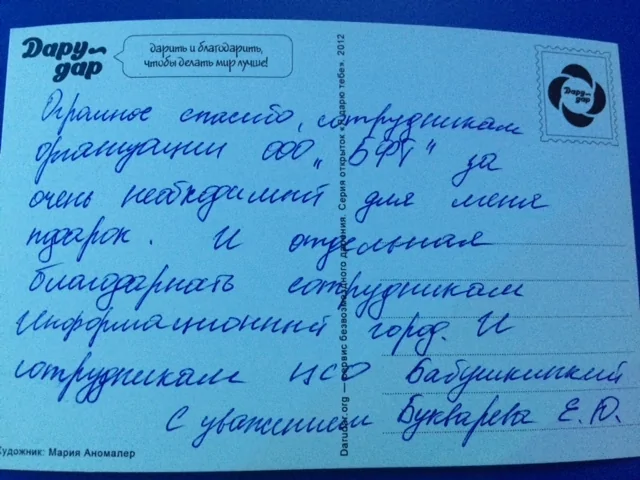 Дару-
дар
дарить и благодарить,
чтобы делать мир лучше!
Дару-
дар
Огромное спасибо, сотрудникам
организации ООО „БФТ" за
очень необходимый для меня
подарок. И отдельная
благодарнать сотрудникам
Информационный город. И
сотрудникам ЦСО Бабушкинский
С уважением Букварева Е.Ю.
Художник: Мария Аномалер
Darudar.org — сервис безвозмездного дарения. Серия открыток «Я дарю тебе». 2012